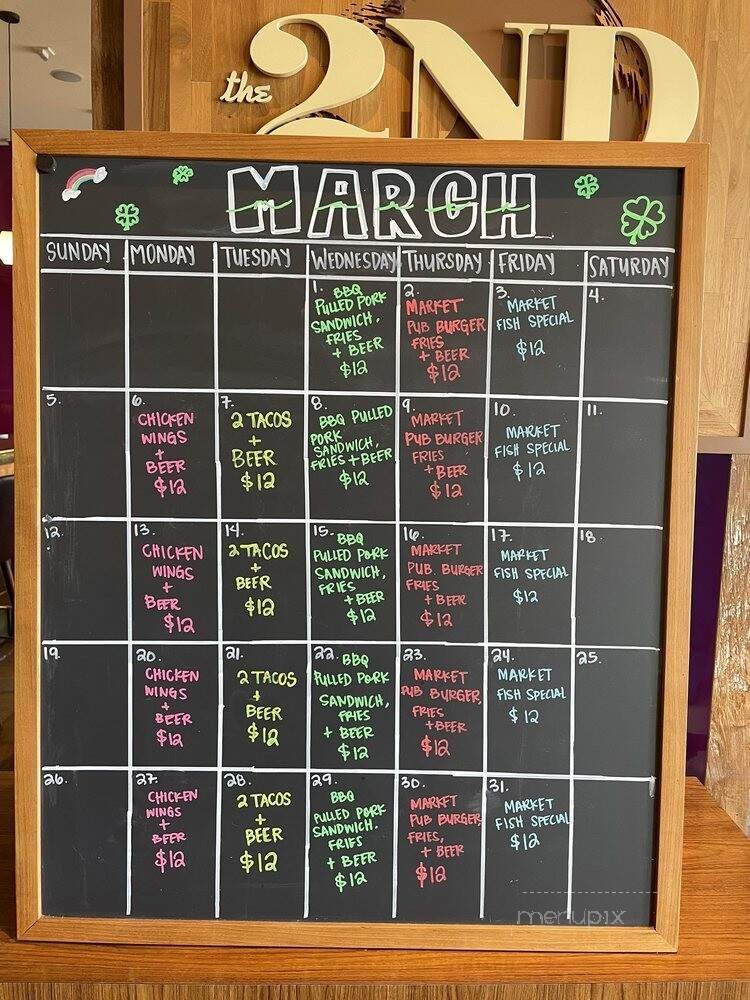 the 2ND
MARCH
SUNDAY MONDAY TUESDAY WEDNESDAY THURSDAY FRIDAY SATURDAY
1.
BBQ
PULLED PORK
SANDWICH,
FRIES
+ BEER
$12
2.
MARKET
PUB BURGER
FRIES
+ BEER
$12
3.
MARKET
FISH SPECIAL
$12
4.
5.
6.
CHICKEN
WINGS
+
BEER
$12
7.
2 TACOS
+
BEER
$12
8.
BBQ PULLED
PORK
SANDWICH,
FRIES + BEER
$12
9.
MARKET
PUB BURGER
FRIES
+ BEER
$12
10.
MARKET
FISH SPECIAL
$12
11.
12.
13.
CHICKEN
WINGS
+
BEER
$12
14.
2 TACOS
+
BEER
$12
15.
BBQ
PULLED PORK
SANDWICH,
FRIES
+ BEER
$12
16.
MARKET
PUB BURGER
FRIES
+ BEER
$12
17.
MARKET
FISH SPECIAL
$12
18.
19.
20.
CHICKEN
WINGS
+
BEER
$12
21.
2 TACOS
+
BEER
$12
22.
BBQ
PULLED PORK
SANDWICH,
FRIES
+ BEER
$12
23.
MARKET
PUB BURGER,
FRIES
+ BEER
$12
24.
MARKET
FISH SPECIAL
$12
25.
26.
27.
CHICKEN
WINGS
+
BEER
$12
28.
2 TACOS
+
BEER
$12
29.
BBQ
PULLED PORK
SANDWICH.
FRIES
+ BEER
$12
30.
MARKET
PUB BURGER,
FRIES,
+ BEER
$12
31.
MARKET
FISH SPECIAL
$12
menupix